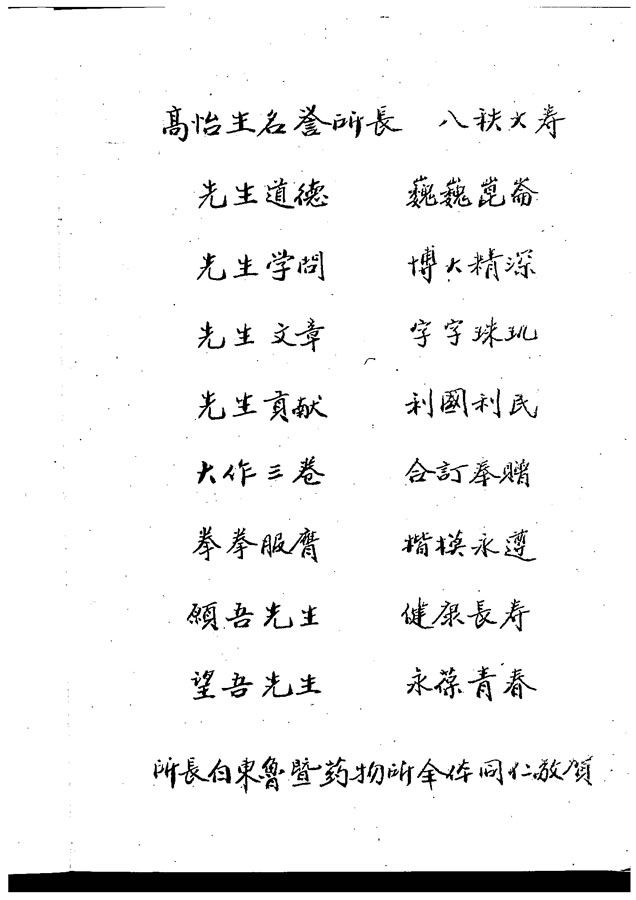 高怡生名誉所長 八秩大寿
先生道德 巍巍崑崙
先生学問 博大精深
先生文章 字字珠玑
先生貢献 利國利民
大作三卷 合訂奉贈
拳拳服膺 楷模永遵
願吾先生 健康長寿
望吾先生 永葆青春
所長白東魯暨药物所全体同仁敬賀